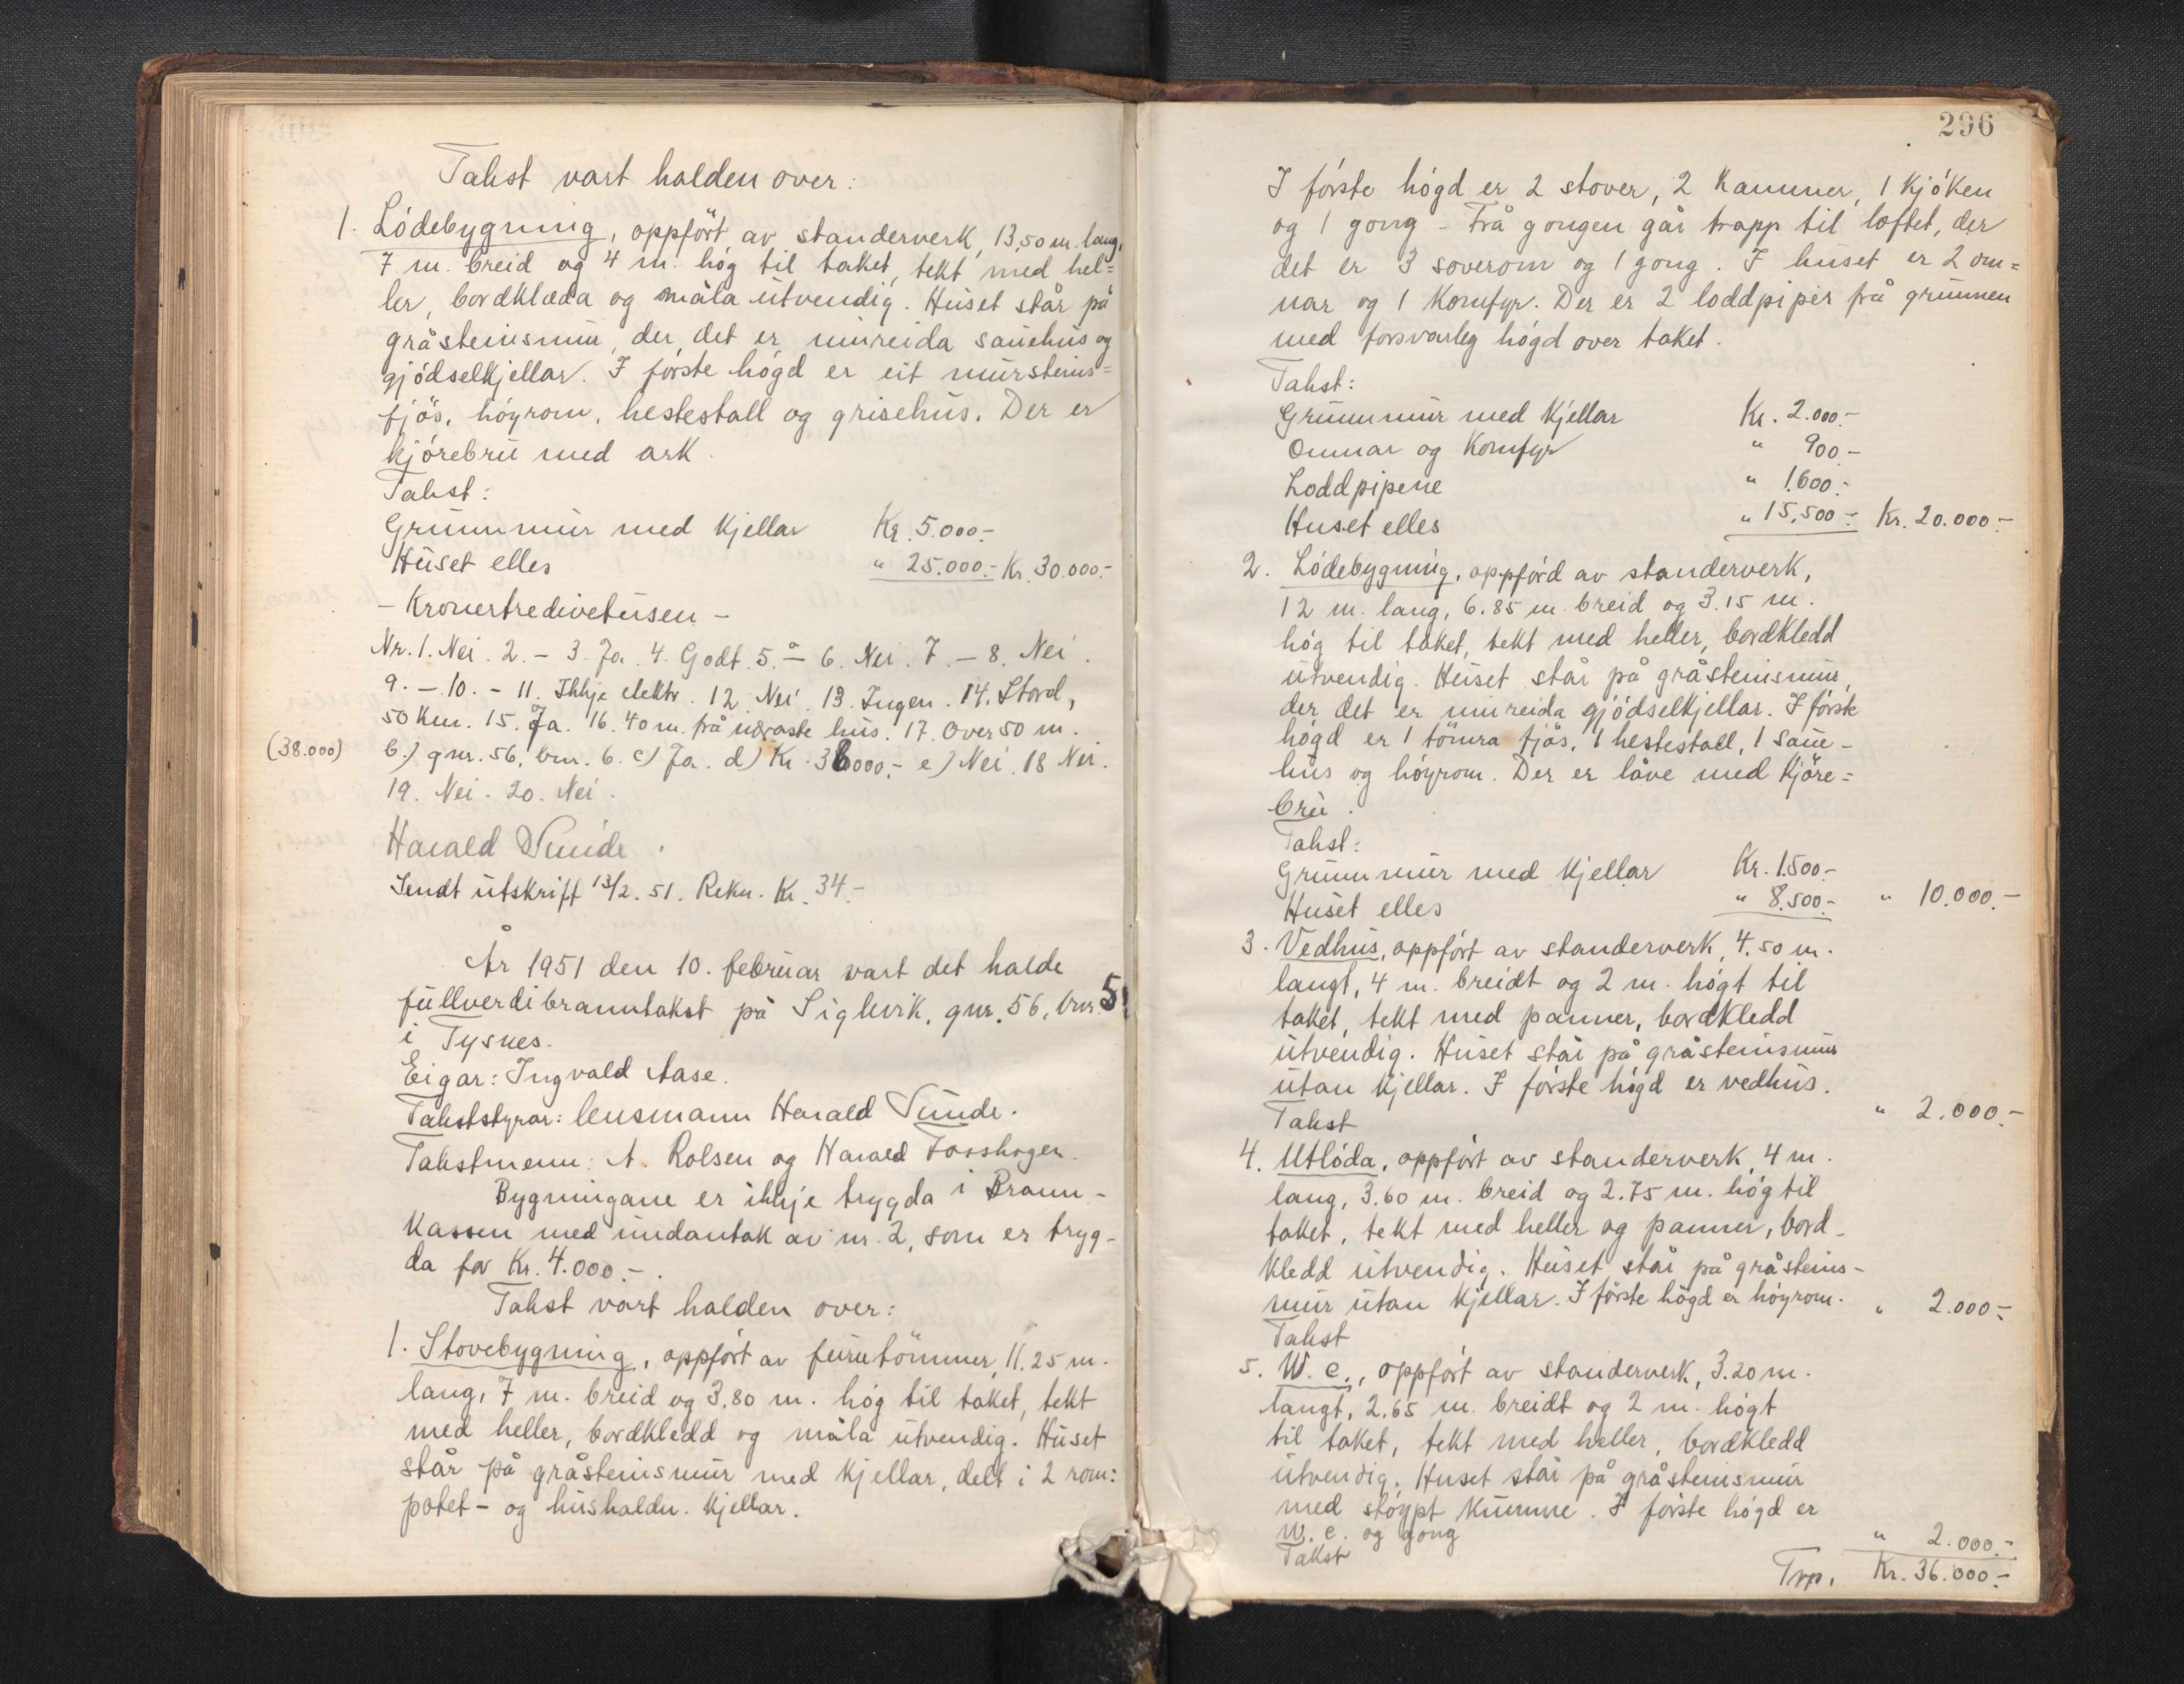 Takst vart halden over:
1. Lödebygning, oppfört av standerverk, 13,50 m. lang,
7 m. breid og 4 m. hög til taket, tekt med hel=
ler, bordklæda og måla utvendig. Huset står på
gråsteinsmur, der det er innreida sauehus og
gjödselkjellar. I förste högd er eit mursteins=
fjös, höyrom, hestestall og grisehus. Der er
kjörebru med ark.
Takst:
Grunnmur med kjellar Kr. 5.000.-
Huset elles " 25.000.- Kr. 30.000.-
- Kronertredivetusen -
Nr. 1. Nei. 2. - 3. Ja. 4. Godt. 5. - 6. Nei. 7. - 8. Nei.
9. - 10. - 11. Ikkje elektr. 12. Nei. 13. Ingen. 14. Stord,
50 km. 15. Ja. 16. 40 m. frå næraste hus. 17. Over 50 m.
(38.000) b.) gnr. 56, bnr. 6. c) Ja. d) Kr. 38000.- e) Nei. 18 Nei.
19. Nei. 20. Nei.
Harald Sunde.
Sendt utskrift 13/2. 51. Rekn. Kr. 34.-
År 1951 den 10. februar vart det halde
fullverdibranntakst på Siglevik, gnr. 56, bnr. 5
i Tysnes.
Eigar: Ingvald Aase.
Takststyrar: lensmann Harald Sunde.
Takstmenn: A. Rolsen og Harald
Bygningane er ikkje trygda i Brann-
kassen med undantak av nr. 2, som er tryg-
da for Kr. 4.000.-.
Takst vart halden over:
1. Stovebygning, oppfört av furutömmer, 11.25 m.
lang, 7 m. breid og 3,80 m. hög til taket, tekt
med heller, bordkledd og måla utvendig. Huset
står på gråsteinsmur med kjellar, delt i 2 rom:
potet- og hushaldn. kjellar.
296
I förste högd er 2 stover, 2 kammer, 1 kjöken
og 1 gong - Frå gongen går trapp til loftet, der
det er 3 soverom og 1 gong. I huset er 2 om=
nar og 1 komfyr. Der er 2 loddpiper frå grunnen
med forsvarleg högd over taket.
Takst:
Grunnmur med kjellar Kr. 2.000.-
Omnar og komfyr " 900.-
Loddpipene " 1.600.-
Huset elles " 15,500.- Kr. 20.000.-
2. Lödebygning, oppförd av standerverk,
12 m. lang, 6.85 m. breid og 3.15 m.
hög til taket, tekt med heller, bordkledd
utvendig. Huset står på gråsteinsmur,
der det er innreida gjödselkjellar. I förste
högd er 1 tömra fjös, 1 hestestall, 1 saue-
hus og höyrom. Der er låve med kjöre=
bru.
Takst:
Grunnmur med kjellar Kr. 1.500.-
Huset elles " 8.500.- " 10.000.-
3. Vedhus, oppfört av standerverk, 4.50 m.
langt, 4 m. breidt og 2 m. högt til
taket, tekt med panner, bordkledd
utvendig. Huset står på gråsteinsmur
utan kjellar. I förste högd er vedhus.
Takst " 2.000.-
4. Utlöda, oppfört av standerverk, 4 m.
lang, 3.60 m. breid og 2.75 m. hög til
taket, tekt med heller og panner, bord-
kledd utvendig. Huset står på gråsteins-
mur utan kjellar. I förste högd er höyrom. " 2.000.-
Takst
5. W. c., oppfört av standerverk, 3.20 m.
langt, 2.65 m. breidt og 2 m. högt
til taket, tekt med heller, bordkledd
utvendig. Huset står på gråsteinsmur
med stöypt kumme. I förste högd er
w. c. og gong
Takst " 2.000.-
Trp. Kr. 36.000.-